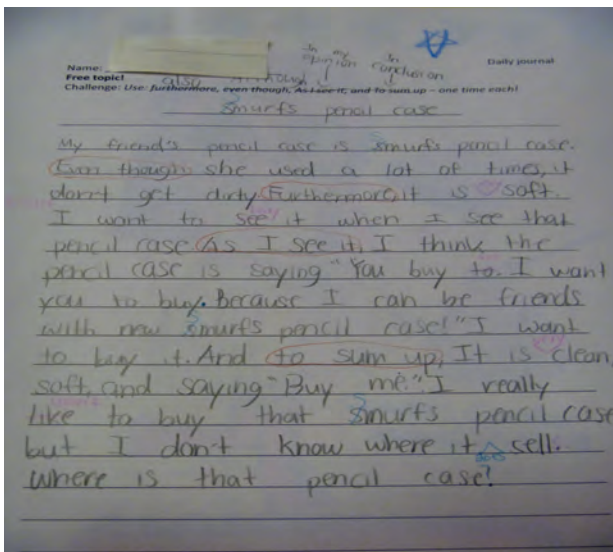 In my opinion In conclusion
Name: Daily journal
Free topic! also Although
Challenge: Use: furthermore, even though, As I see it, and to sum up – one time each!
Smurfs pencil case
My friend's pencil case is Smurfs pencil case.
Even though she used a lot of times, it
don't get dirty. Furthermore, it is soft.
I want to see it when I see that
pencil case. As I see it, I think the
pencil case is saying "You buy to. I want
you to buy. Because I can be friends
with new Smurfs pencil case!" I want
to buy it. And to sum up, It is clean,
soft, and saying "Buy me." I really
like to buy that Smurfs pencil case
but I don't know where it does sell.
Where is that pencil case?